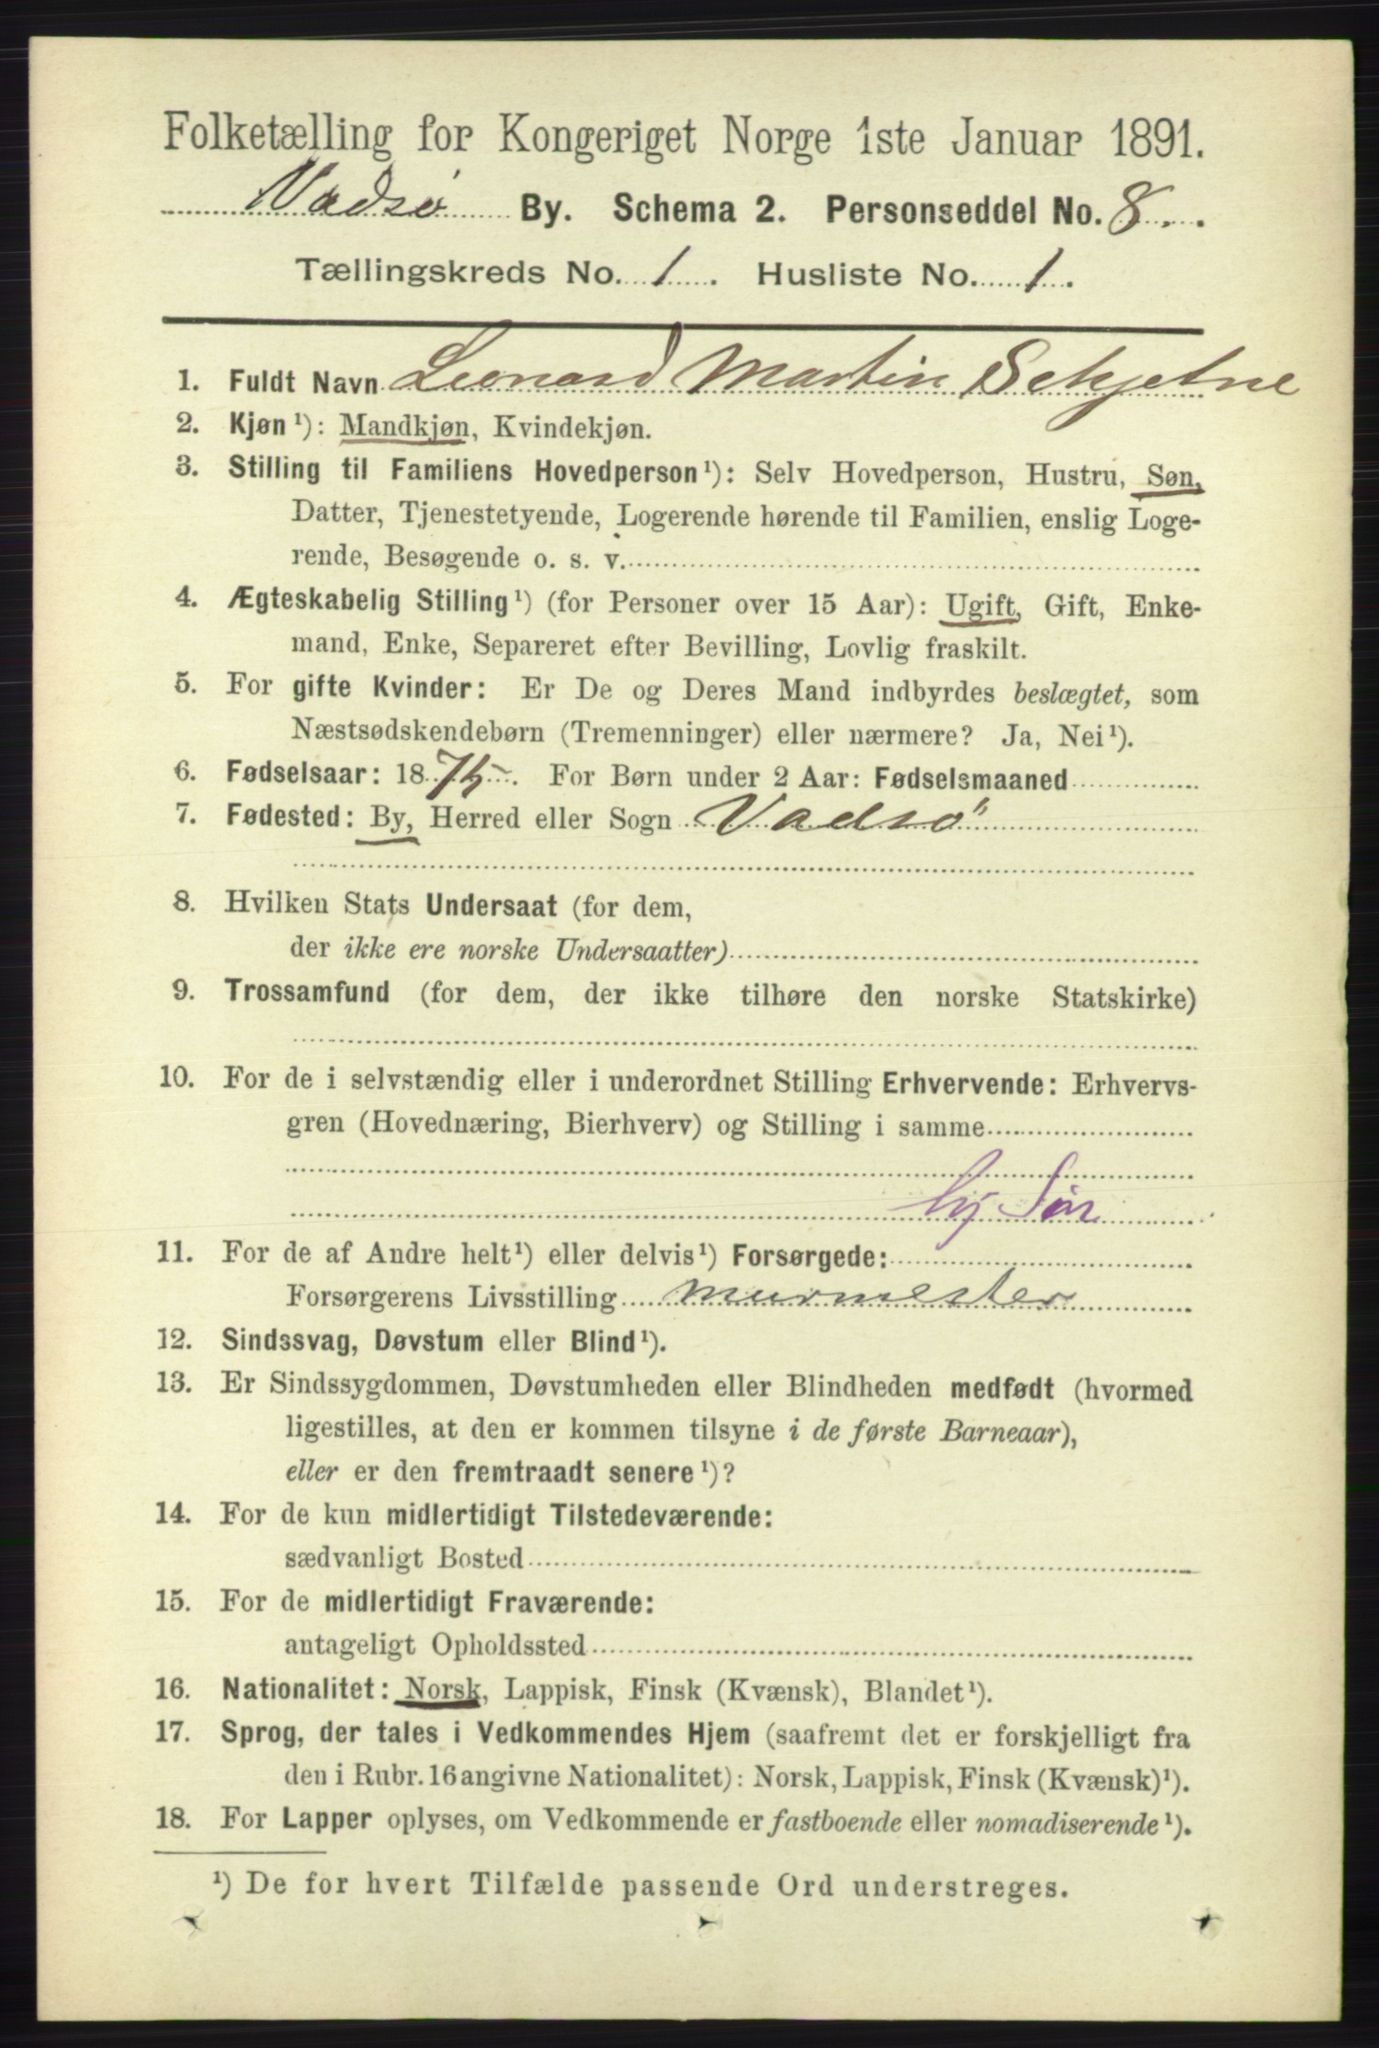 Folketælling for Kongeriget Norge 1ste Januar 1891.
Vadsø By. Schema 2. Personseddel No. 8.
Tællingskreds No. 1. Husliste No. 1.
1. Fuldt Navn Leonard Martin Schjetne
2. Kjøn¹): Mandkjøn, Kvindekjøn.
3. Stilling til Familiens Hovedperson¹): Selv Hovedperson, Hustru, Søn,
Datter, Tjenestetyende, Logerende hørende til Familien, enslig Loge-
rende, Besøgende o. s. v.
4. Ægteskabelig Stilling¹) (for Personer over 15 Aar): Ugift, Gift, Enke-
mand, Enke, Separeret efter Bevilling, Lovlig fraskilt.
5. For gifte Kvinder: Er De og Deres Mand indbyrdes beslægtet, som
Næstsødskendebørn (Tremenninger) eller nærmere? Ja, Nei¹).
6. Fødselsaar: 1875. For Børn under 2 Aar: Fødselsmaaned
7. Fødested: By, Herred eller Sogn Vadsø
8. Hvilken Stats Undersaat (for dem,
der ikke ere norske Undersaatter)
9. Trossamfund (for dem, der ikke tilhøre den norske Statskirke)
10. For de i selvstændig eller i underordnet Stilling Erhvervende: Erhvervs-
gren (Hovednæring, Bierhverv) og Stilling i samme
Søn
11. For de af Andre helt¹) eller delvis¹) Forsørgede:
Forsørgerens Livsstilling murmester
12. Sindssvag, Døvstum eller Blind¹).
13. Er Sindssygdommen, Døvstumheden eller Blindheden medfødt (hvormed
ligestilles, at den er kommen tilsyne i de første Barneaar),
eller er den fremtraadt senere¹)?
14. For de kun midlertidigt Tilstedeværende:
sædvanligt Bosted
15. For de midlertidigt Fraværende:
antageligt Opholdssted
16. Nationalitet: Norsk, Lappisk, Finsk (Kvænsk), Blandet¹).
17. Sprog, der tales i Vedkommendes Hjem (saafremt det er forskjelligt fra
den i Rubr. 16 angivne Nationalitet): Norsk, Lappisk, Finsk (Kvænsk)¹).
18. For Lapper oplyses, om Vedkommende er fastboende eller nomadiserende¹).
¹) De for hvert Tilfælde passende Ord understreges.